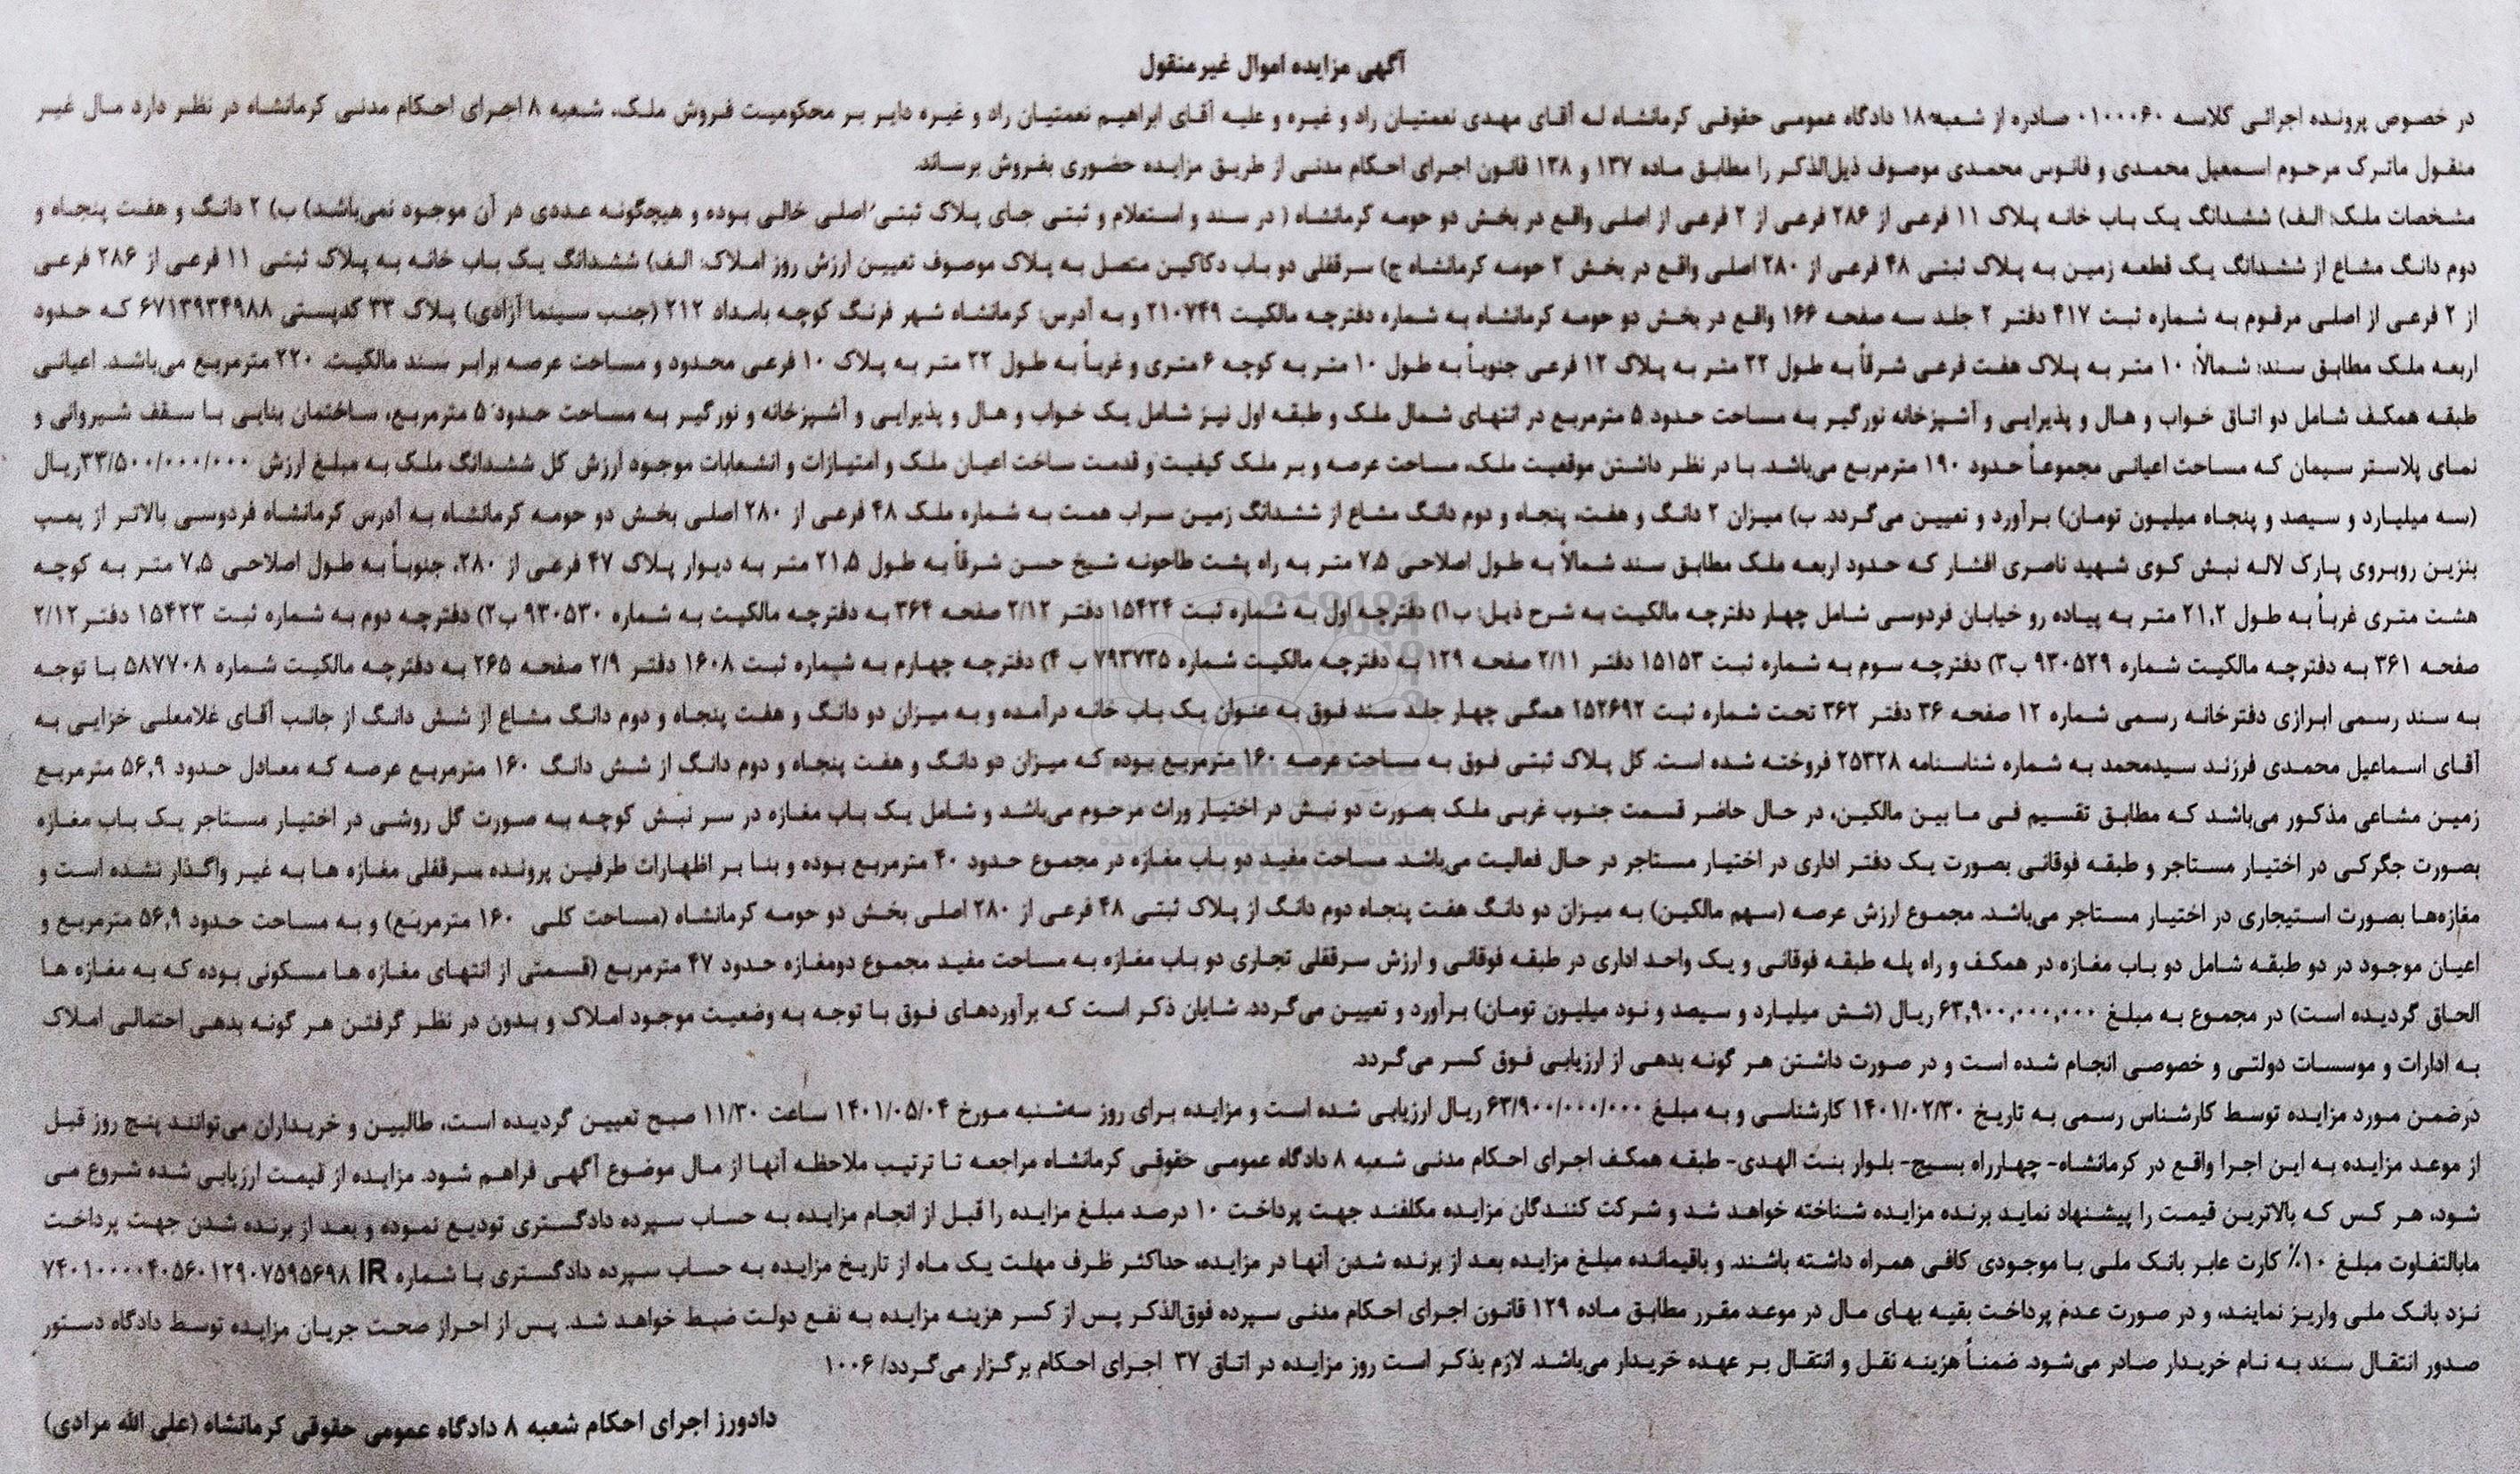 آگهی مزایده اموال غیرمنقول
در خصوص پرونده اجرائی کلاسه ۰۱۰۰۰۶۰ صادره از شعبه ۱۸ دادگاه عمومی حقوقی کرمانشاه له آقای مهدی نعمتیان راد و غیره و علیه آقای ابراهیم نعمتیان راد و غیره دایر بر محکومیت فروش ملک، شعبه ۸ اجرای احکام مدنی کرمانشاه در نظر دارد مال غیر
منقول ماترک مرحوم اسمعیل محمدی و فانوس محمدی موصوف ذیل‌الذکر را مطابق ماده ۱۳۷ و ۱۳۸ قانون اجرای احکام مدنی از طریق مزایده حضوری بفروش برساند.
مشخصات ملک: الف) ششدانگ یک باب خانه پلاک ۱۱ فرعی از ۲۸۶ فرعی از ۲ فرعی از اصلی واقع در بخش دو حومه کرمانشاه ( در سند و استعلام و ثبتی جای پلاک ثبتی اصلی خالی بوده و هیچگونه عددی در آن موجود نمی‌باشد) ب) ۲ دانگ و هفت پنجاه و
دوم دانگ مشاع از ششدانگ یک قطعه زمین به پلاک ثبتی ۴۸ فرعی از ۲۸۰ اصلی واقع در بخش ۲ حومه کرمانشاه ج) سرقفلی دو باب دکاکین متصل به پلاک موصوف تعیین ارزش روز املاک: الف) ششدانگ یک باب خانه به پلاک ثبتی ۱۱ فرعی از ۲۸۶ فرعی
از ۲ فرعی از اصلی مرقوم به شماره ثبت ۴۱۷ دفتر ۲ جلد سه صفحه ۱۶۶ واقع در بخش دو حومه کرمانشاه به شماره دفترچه مالکیت ۲۱۰۷۴۹ و به آدرس: کرمانشاه شهر فرنگ کوچه بامداد ۲۱۲ (جنب سینما آزادی) پلاک ۳۳ کدپستی ۶۷۱۳۹۳۴۹۸۸ که حدود
اربعه ملک مطابق سند: شمالاً: ۱۰ متر به پلاک هفت فرعی شرقاً به طول ۲۲ متر به پلاک ۱۲ فرعی جنوباً به طول ۱۰ متر به کوچه ۶ متری و غرباً به طول ۲۲ متر به پلاک ۱۰ فرعی محدود و مساحت عرصه برابر سند مالکیت، ۲۲۰ مترمربع می‌باشد. اعیانی
طبقه همکف شامل دو اتاق خواب و هال و پذیرایی و آشپزخانه نورگیر به مساحت حدود ۵ مترمربع در انتهای شمال ملک و طبقه اول نیز شامل یک خواب و هال و پذیرایی و آشپزخانه و نورگیر به مساحت حدود ۵ مترمربع، ساختمان بنایی با سقف شیروانی و
نمای پلاستر سیمان که مساحت اعیانی مجموعاً حدود ۱۹۰ مترمربع می‌باشد. با در نظر داشتن موقعیت ملک، مساحت عرصه و بر ملک کیفیت و قدمت ساخت اعیان ملک و امتیازات و انشعابات موجود ارزش کل ششدانگ ملک به مبلغ ارزش ۳۳/۵۰۰/۰۰۰/۰۰۰ریال
(سه میلیارد و سیصد و پنجاه میلیون تومان) برآورد و تعیین می‌گردد. ب) میزان ۲ دانگ و هفت، پنجاه و دوم دانگ مشاع از ششدانگ زمین سراب همت به شماره ملک ۴۸ فرعی از ۲۸۰ اصلی بخش دو حومه کرمانشاه به آدرس کرمانشاه فردوسی بالاتر از پمپ
بنزین روبروی پارک لاله نبش کوی شهید ناصری افشار که حدود اربعه ملک مطابق سند شمالاً به طول اصلاحی ۷,۵ متر به راه پشت طاحونه شیخ حسن شرقاً به طول ۲۱,۵ متر به دیوار پلاک ۴۷ فرعی از ۲۸۰، جنوباً به طول اصلاحی ۷,۵ متر به کوچه
هشت متری غرباً به طول ۲۱,۲ متر به پیاده رو خیابان فردوسی شامل چهار دفترچه مالکیت به شرح ذیل: ب۱) دفترچه اول به شماره ثبت ۱۵۴۲۴ دفتر ۲/۱۲ صفحه ۳۶۴ به دفترچه مالکیت به شماره ۹۳۰۵۳۰ ب۲) دفترچه دوم به شماره ثبت ۱۵۴۲۳ دفتر ۲/۱۲
صفحه ۳۶۱ به دفترچه مالکیت شماره ۹۳۰۵۲۹ ب۳) دفترچه سوم به شماره ثبت ۱۵۱۵۳ دفتر ۲/۱۱ صفحه ۱۲۹ به دفترچه مالکیت شماره ۷۹۳۷۳۵ ب ۴) دفترچه چهارم به شماره ثبت ۱۶۰۸ دفتر ۲/۹ صفحه ۲۶۵ به دفترچه مالکیت شماره ۵۸۷۷۰۸ با توجه
به سند رسمی ابرازی دفترخانه رسمی شماره ۱۲ صفحه ۳۶ دفتر ۳۶۲ تحت شماره ثبت ۲۵۲۶۹۲ همگی چهار جلد سند فوق به عنوان یک باب خانه درآمده و به میزان دو دانگ و هفت پنجاه و دوم دانگ مشاع از شش دانگ از جانب آقای غلامعلی خزایی به
آقای اسماعیل محمدی فرزند سیدمحمد به شماره شناسنامه ۲۵۳۲۸ فروخته شده است. کل پلاک ثبتی فوق به مساحت عرصه ۱۶۰ مترمربع بوده که میزان دو دانگ و هفت پنجاه و دوم دانگ از شش دانگ ۱۶۰ مترمربع عرصه که معادل حدود ۵۶,۹ مترمربع
زمین مشاعی مذکور می‌باشد که مطابق تقسیم فی ما بین مالکین، در حال حاضر قسمت جنوب غربی ملک بصورت دو نبش در اختیار وراث مرحوم می‌باشد و شامل یک باب مغازه در سر نبش کوچه به صورت گل روشی در اختیار مستاجر یک باب مغازه
بصورت جگرکی در اختیار مستاجر و طبقه فوقانی بصورت یک دفتر اداری در اختیار مستاجر در حال فعالیت می‌باشد. مساحت مفید دو باب مغازه در مجموع حدود ۴۰ مترمربع بوده و بنا بر اظهارات طرفین پرونده سرقفلی مغازه ها به غیر واگذار نشده است و
مغازه‌ها بصورت استیجاری در اختیار مستاجر می‌باشد. مجموع ارزش عرصه (سهم مالکین) به میزان دو دانگ هفت پنجاه دوم دانگ از پلاک ثبتی ۴۸ فرعی از ۲۸۰ اصلی بخش دو حومه کرمانشاه (مساحت کلی ۱۶۰ مترمربع) و به مساحت حدود ۵۶,۹ مترمربع و
اعیان موجود در دو طبقه شامل دو باب مغازه در همکف و راه پله طبقه فوقانی و یک واحد اداری در طبقه فوقانی و ارزش سرقفلی تجاری دو باب مغازه به مساحت مفید مجموع دومغازه حدود ۴۷ مترمربع (قسمتی از انتهای مغازه ها مسکونی بوده که به مغازه ها
الحاق گردیده است) در مجموع به مبلغ ۶۳,۹۰۰,۰۰۰,۰۰۰ ریال (شش میلیارد و سیصد و نود میلیون تومان) برآورد و تعیین می‌گردد. شایان ذکر است که برآوردهای فوق با توجه به وضعیت موجود املاک و بدون در نظر گرفتن هر گونه بدهی احتمالی املاک
به ادارات و موسسات دولتی و خصوصی انجام شده است و در صورت داشتن هر گونه بدهی از ارزیابی فوق کسر می‌گردد.
درضمن مورد مزایده توسط کارشناس رسمی به تاریخ ۱۴۰۱/۰۲/۳۰ کارشناسی و به مبلغ ۶۳/۹۰۰/۰۰۰/۰۰۰ ریال ارزیابی شده است و مزایده برای روز سه‌شنبه مورخ ۱۴۰۱/۰۵/۰۴ ساعت ۱۱/۳۰ صبح تعیین گردیده است، طالبین و خریداران می‌توانند پنج روز قبل
از موعد مزایده به این اجرا واقع در کرمانشاه- چهارراه بسیج- بلوار بنت الهدی- طبقه همکف اجرای احکام مدنی شعبه ۸ دادگاه عمومی حقوقی کرمانشاه مراجعه تا ترتیب ملاحظه آنها از مال موضوع آگهی فراهم شود. مزایده از قیمت ارزیابی شده شروع می
شود، هر کس که بالاترین قیمت را پیشنهاد نماید برنده مزایده شناخته خواهد شد و شرکت کنندگان مزایده مکلفند جهت پرداخت ۱۰ درصد مبلغ مزایده را قبل از انجام مزایده به حساب سپرده دادگستری تودیع نموده و بعد از برنده شدن جهت پرداخت
مابالتفاوت مبلغ ۱۰٪ کارت عابر بانک ملی با موجودی کافی همراه داشته باشند. و باقیمانده مبلغ مزایده بعد از برنده شدن آنها در مزایده، حداکثر ظرف مهلت یک ماه از تاریخ مزایده به حساب سپرده دادگستری با شماره IR ۷۴۰۱۰۰۰۰۴۰۵۶۰۱۲۹۰۷۵۹۵۶۹۸
نزد بانک ملی واریز نمایند، و در صورت عدم پرداخت بقیه بهای مال در موعد مقرر مطابق ماده ۱۲۹ قانون اجرای احکام مدنی سپرده فوق‌الذکر پس از کسر هزینه مزایده به نفع دولت ضبط خواهد شد. پس از احراز صحت جریان مزایده توسط دادگاه دستور
صدور انتقال سند به نام خریدار صادر می‌شود. ضمناً هزینه نقل و انتقال بر عهده خریدار می‌باشد. لازم بذکر است روز مزایده در اتاق ۳۷ اجرای احکام برگزار می‌گردد/ ۱۰۰۶
دادورز اجرای احکام شعبه ۸ دادگاه عمومی حقوقی کرمانشاه (علی الله مرادی)